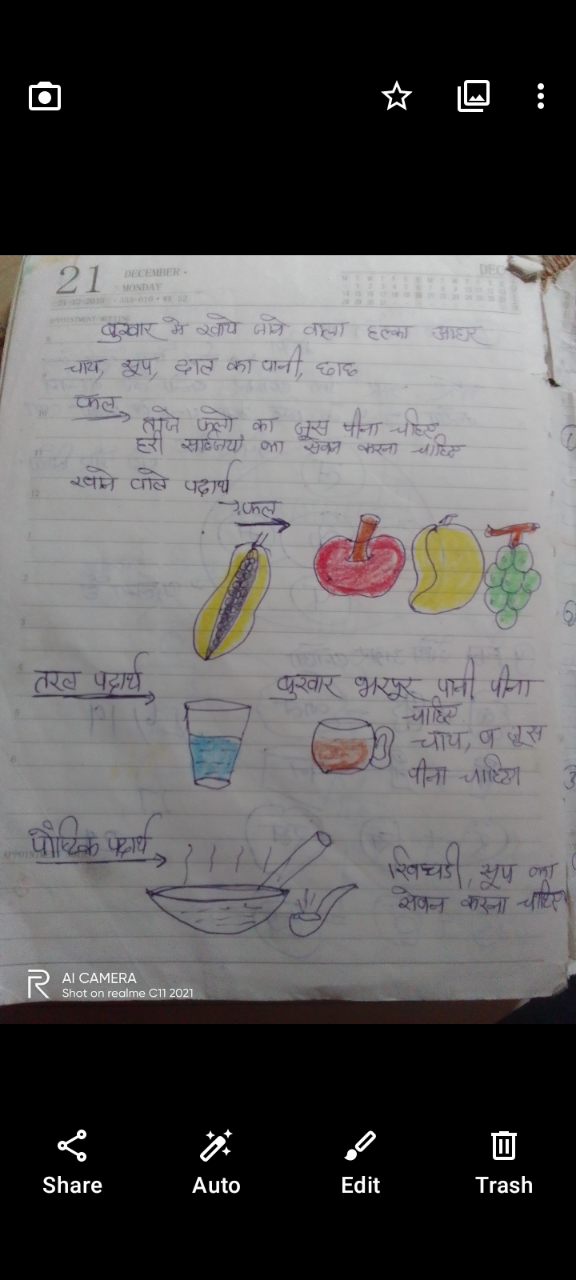 21
DECEMBER
MONDAY
DEC
बुखार मे खाये जाने वाला हल्का आहार
चाय, सूप, दाल का पानी, छाछ
फल
ताजे फलो का जूस पीना चाहिए
हरी सब्जियों का सेवन करना चाहिए
खाने वाले पदार्थ
फल
तरल पदार्थ
बुखार भरपुर पानी पीना
चाहिए
चाय, व जूस
पीना चाहिए
पौष्टिक पदार्थ
खिचडी, सूप का
सेवन करना चाहिए
AI CAMERA
Shot on realme C11 2021
Share
Auto
Edit
Trash